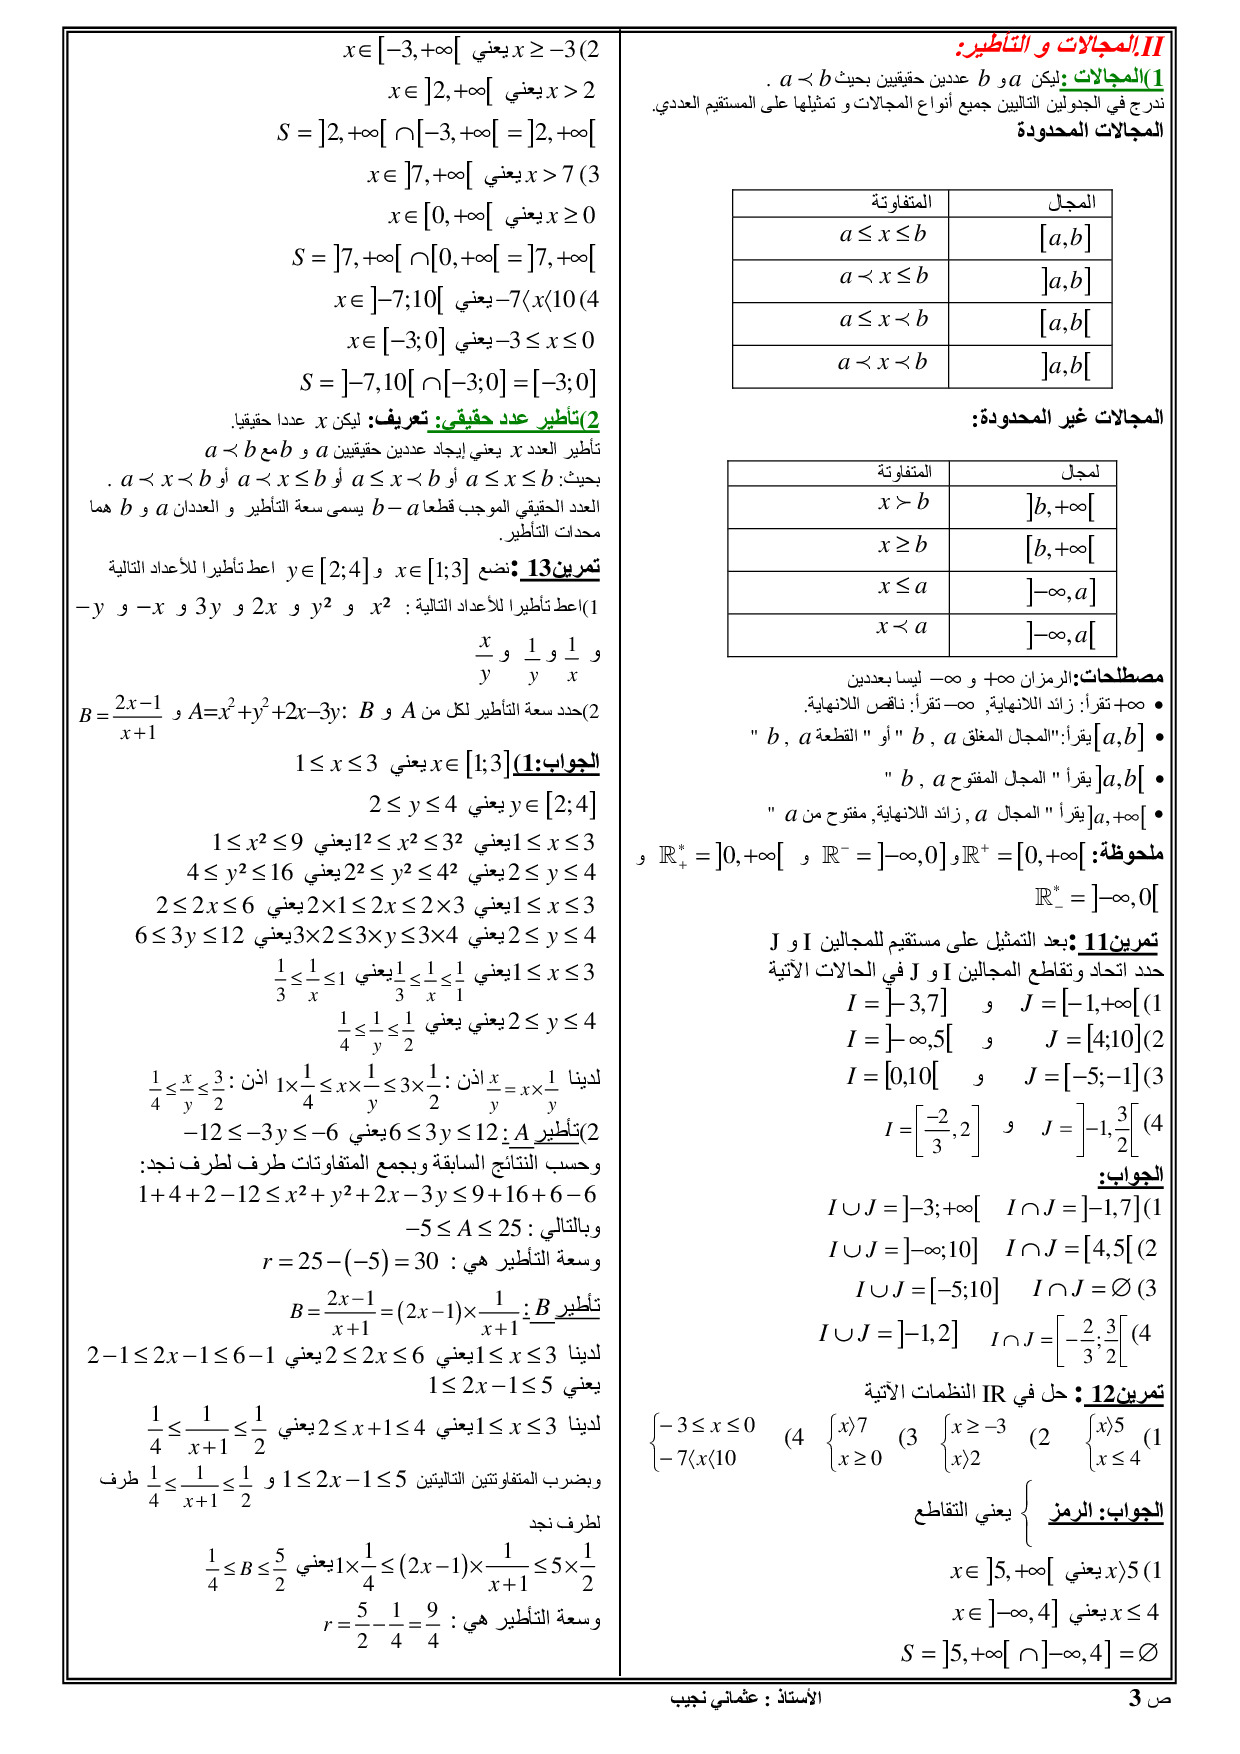 II.المجالات و التأطير:
1)المجالات :ليكن a و b عددين حقيقيين بحيث a ≺ b .
ندرج في الجدولين التاليين جميع أنواع المجالات و تمثيلها على المستقيم العددي.
المجالات المحدودة
المجال	المتفاوتة
[a,b]	a ≤ x ≤ b
]a,b]	a ≺ x ≤ b
[a,b[	a ≤ x ≺ b
]a,b[	a ≺ x ≺ b
المجالات غير المحدودة:
لمجال	المتفاوتة
]b,+∞[	x ≻ b
[b,+∞[	x ≥ b
]−∞,a]	x ≤ a
]−∞,a[	x ≺ a
مصطلحات:الرمزان +∞ و −∞ ليسا بعددين
• +∞ تقرأ: زائد اللانهاية, −∞ تقرأ: ناقص اللانهاية.
• [a,b] يقرأ:"المجال المغلق a , b " أو " القطعة a , b "
• ]a,b[ يقرأ " المجال المفتوح a , b "
• ]a,+∞[ يقرأ " المجال a , زائد اللانهاية, مفتوح من a "
ملحوظة: ℝ⁺ = [0,+∞[ و ℝ⁻ = ]−∞,0] و ℝ₊* = ]0,+∞[ و
ℝ₋* = ]−∞,0[
تمرين11 :بعد التمثيل على مستقيم للمجالين I و J
حدد اتحاد وتقاطع المجالين I و J في الحالات الآتية
1) J = [−1,+∞[ و I = ]−3,7]
2) J = [4;10] و I = ]−∞,5[
3) J = [−5;−1] و I = [0,10[
4) J = ]−1, 3/2[ و I = [−2/3 , 2]
الجواب:
1) I ∩ J = ]−1,7] I ∪ J = ]−3;+∞[
2) I ∩ J = [4,5[ I ∪ J = ]−∞;10]
3) I ∩ J = ∅ I ∪ J = [−5;10]
4) I ∩ J = [−2/3 ; 3/2[ I ∪ J = ]−1,2]
تمرين12 : حل في IR النظمات الآتية
1) { x⟩5 x ≤ 4 2) { x ≥ −3 x⟩2 3) { x⟩7 x ≥ 0 4) { −3 ≤ x ≤ 0 −7⟨x⟨10
الجواب: الرمز { يعني التقاطع
1) x⟩5 يعني x ∈ ]5,+∞[
x ≤ 4 يعني x ∈ ]−∞,4]
S = ]5,+∞[ ∩ ]−∞,4] = ∅
2) x ≥ −3 يعني x ∈ [−3,+∞[
x > 2 يعني x ∈ ]2,+∞[
S = ]2,+∞[ ∩ [−3,+∞[ = ]2,+∞[
3) x > 7 يعني x ∈ ]7,+∞[
x ≥ 0 يعني x ∈ [0,+∞[
S = ]7,+∞[ ∩ [0,+∞[ = ]7,+∞[
4) −7⟨x⟨10 يعني x ∈ ]−7;10[
−3 ≤ x ≤ 0 يعني x ∈ [−3;0]
S = ]−7,10[ ∩ [−3;0] = [−3;0]
2)تأطير عدد حقيقي: تعريف: ليكن x عددا حقيقيا.
تأطير العدد x يعني إيجاد عددين حقيقيين a و b مع a ≺ b
بحيث: a ≤ x ≤ b أو a ≤ x ≺ b أو a ≺ x ≤ b أو a ≺ x ≺ b .
العدد الحقيقي الموجب قطعا b − a يسمى سعة التأطير و العددان a و b هما
محدات التأطير.
تمرين13 :نضع x ∈ [1;3] و y ∈ [2;4] اعط تأطيرا للأعداد التالية
1)اعط تأطيرا للأعداد التالية : x² و y² و 2x و 3y و −x و −y
و 1/x و 1/y و x/y
2)حدد سعة التأطير لكل من A و B :A=x²+y²+2x−3y و B = (2x−1)/(x+1)
الجواب:1) x ∈ [1;3] يعني 1 ≤ x ≤ 3
y ∈ [2;4] يعني 2 ≤ y ≤ 4
1 ≤ x ≤ 3 يعني 1² ≤ x² ≤ 3² يعني 1 ≤ x² ≤ 9
2 ≤ y ≤ 4 يعني 2² ≤ y² ≤ 4² يعني 4 ≤ y² ≤ 16
1 ≤ x ≤ 3 يعني 2×1 ≤ 2x ≤ 2×3 يعني 2 ≤ 2x ≤ 6
2 ≤ y ≤ 4 يعني 3×2 ≤ 3×y ≤ 3×4 يعني 6 ≤ 3y ≤ 12
1 ≤ x ≤ 3 يعني 1/3 ≤ 1/x ≤ 1/1 يعني 1/3 ≤ 1/x ≤ 1
2 ≤ y ≤ 4 يعني يعني 1/4 ≤ 1/y ≤ 1/2
لدينا x/y = x × 1/y اذن : 1×1/4 ≤ x×1/y ≤ 3×1/2 اذن : 1/4 ≤ x/y ≤ 3/2
2)تأطير A : 6 ≤ 3y ≤ 12 يعني −12 ≤ −3y ≤ −6
وحسب النتائج السابقة وبجمع المتفاوتات طرف لطرف نجد:
1+4+2−12 ≤ x²+y²+2x−3y ≤ 9+16+6−6
وبالتالي : −5 ≤ A ≤ 25
وسعة التأطير هي : r = 25−(−5) = 30
تأطير B : B = (2x−1)/(x+1) = (2x−1)× 1/(x+1)
لدينا 1 ≤ x ≤ 3 يعني 2 ≤ 2x ≤ 6 يعني 2−1 ≤ 2x−1 ≤ 6−1
يعني 1 ≤ 2x−1 ≤ 5
لدينا 1 ≤ x ≤ 3 يعني 2 ≤ x+1 ≤ 4 يعني 1/4 ≤ 1/(x+1) ≤ 1/2
وبضرب المتفاوتتين التاليتين 1 ≤ 2x−1 ≤ 5 و 1/4 ≤ 1/(x+1) ≤ 1/2 طرف
لطرف نجد
1×1/4 ≤ (2x−1)× 1/(x+1) ≤ 5×1/2 يعني 1/4 ≤ B ≤ 5/2
وسعة التأطير هي : r = 5/2 − 1/4 = 9/4
ص 3 الأستاذ : عثماني نجيب